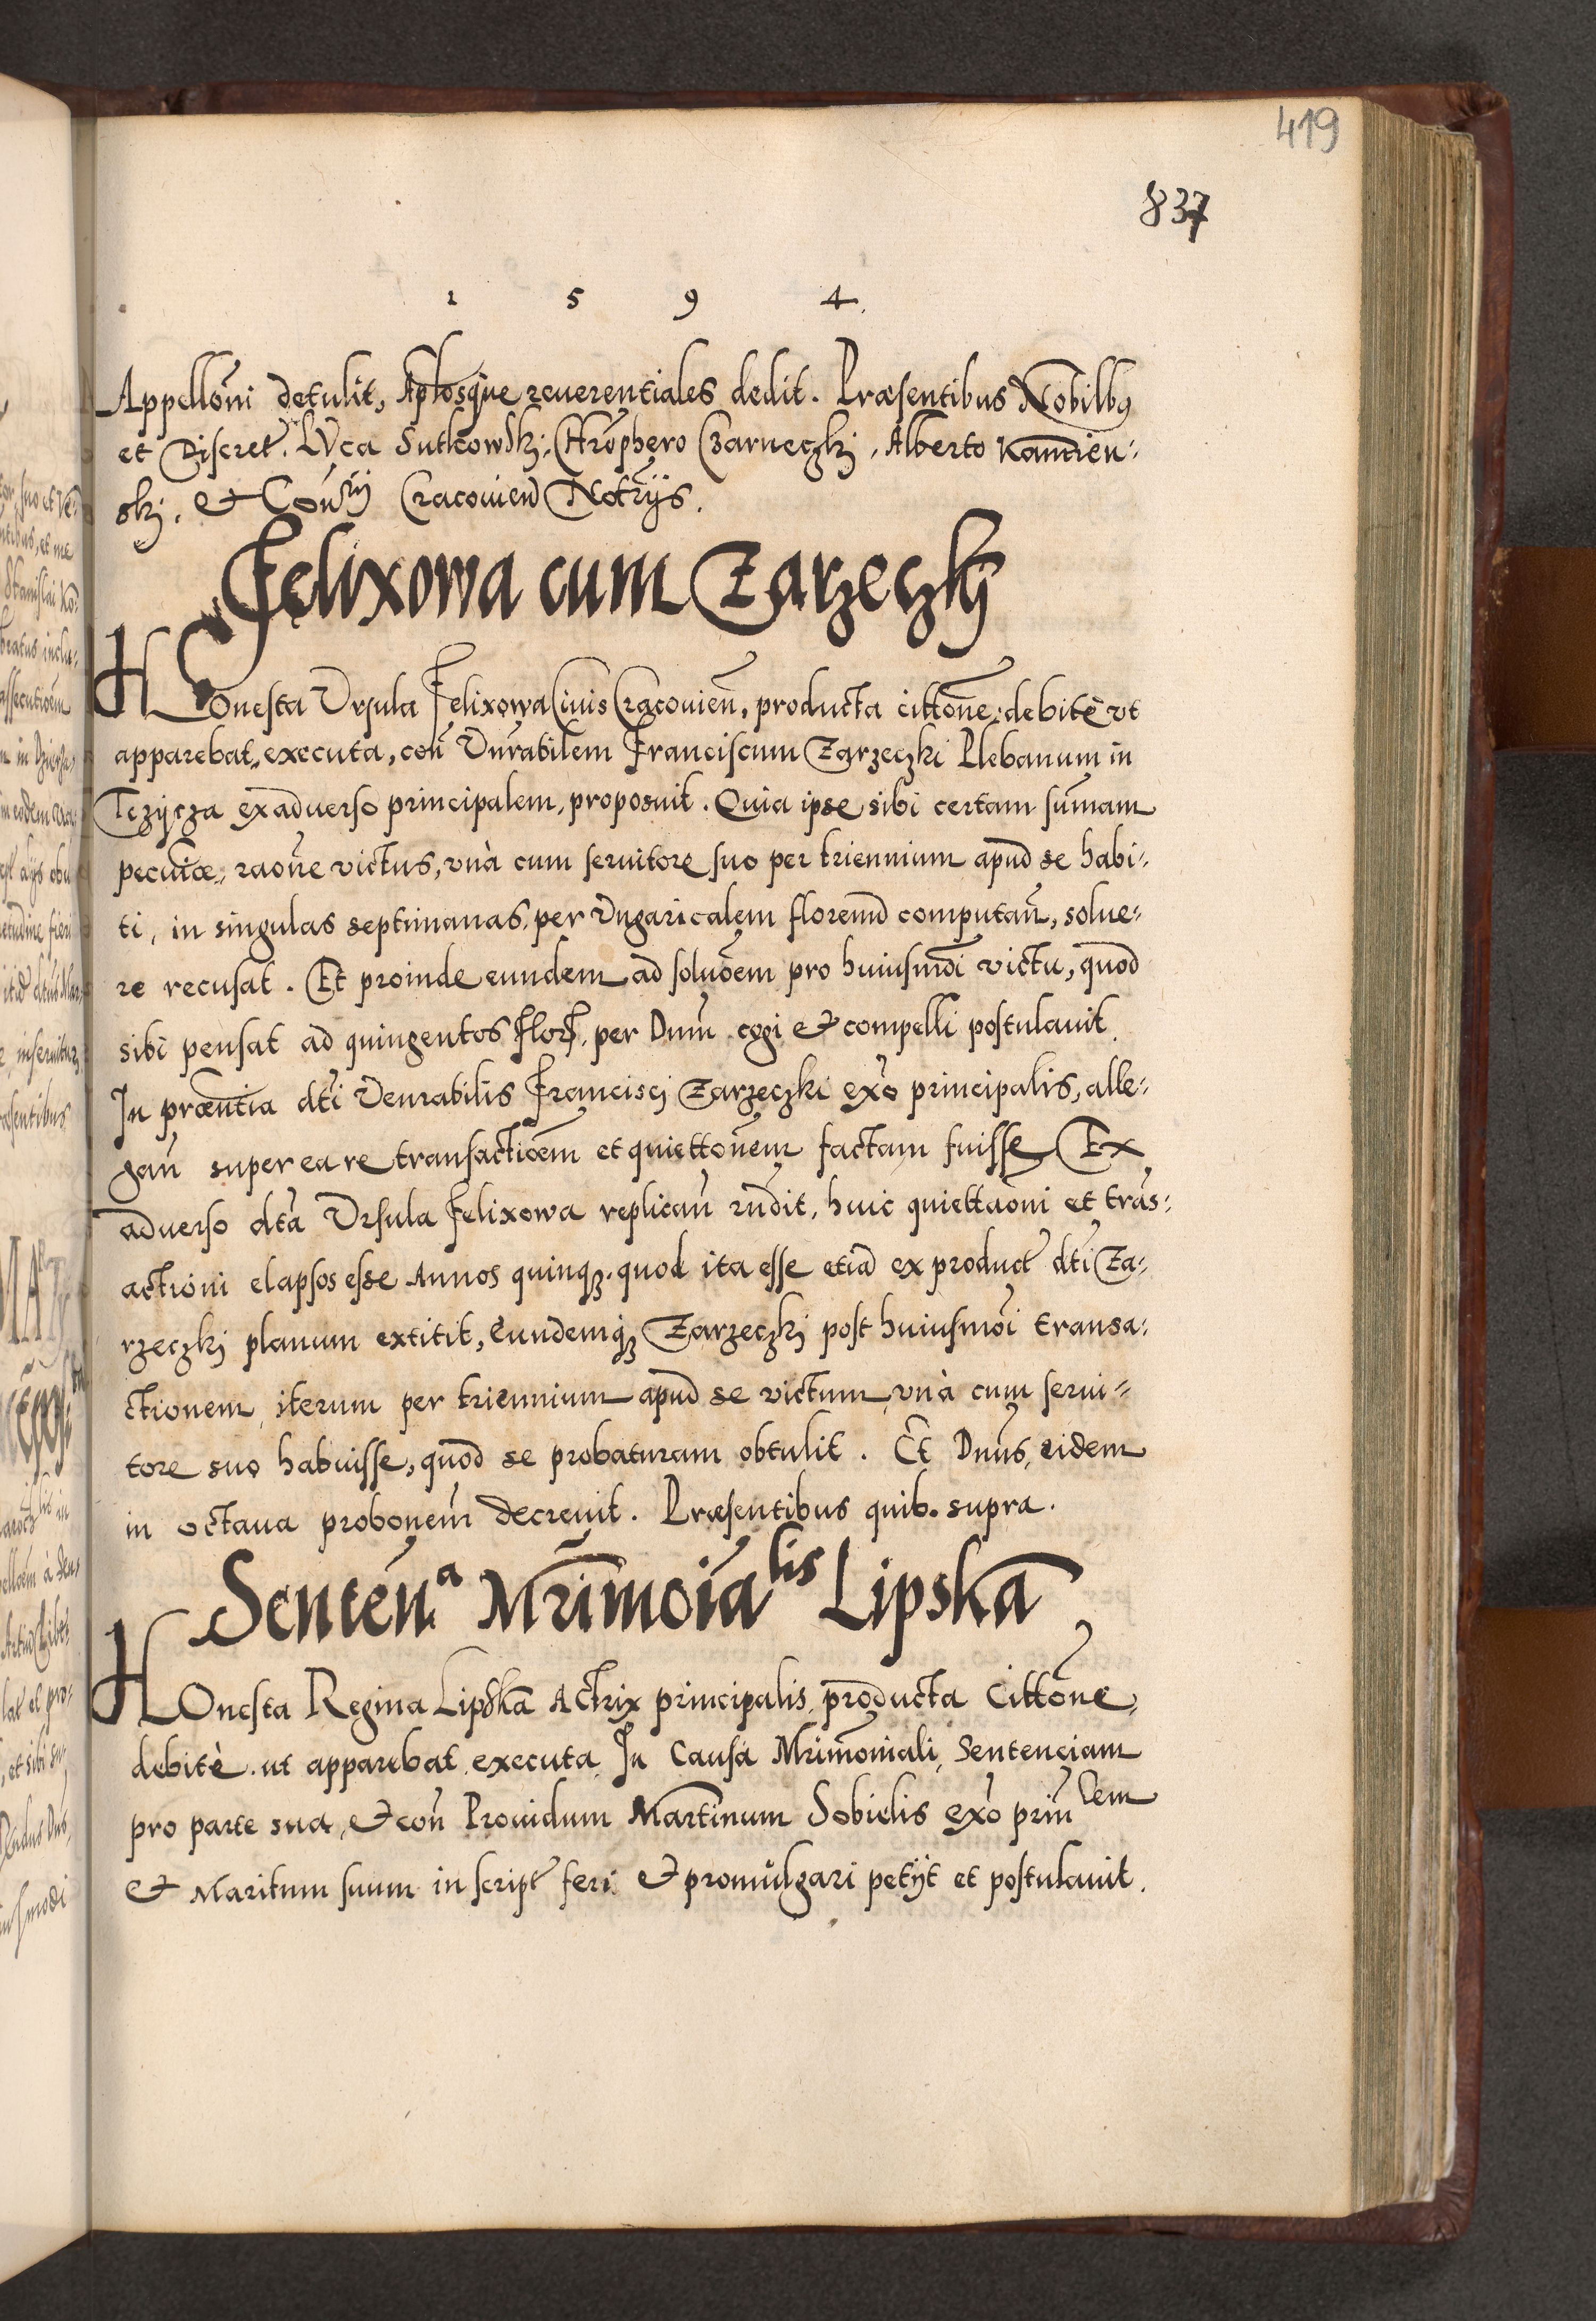 419
837
1 5 9 4.
Appellõni detulit, Aplosque reuerentiales dedit. Præsentibus Nobilbq
et Discret. Lvca Sutkowskj, Chrõphero Czarneczkj, Alberto Kamien:
skj. & Cõnrij Cracouien̄ Notrijs.
Felixowa cum Zarzeczkj
HOnesta Vrsula Felixowa Ciuis Cracouien̄, producta cittõne, debitè vt
apparebat, executa, con̄ Vnrabilem Franciscum Zarzeczki Plebanum in
Tczijcza ex aduerso principalem, proposuit. Quia ipse sibi certam sum̄am
pecuiæ, raõne victus, vnà cum seruitore suo per triennium apud se habi:
ti, in singulas septimanas, per Vngaricalem florenũ computan̄, solue:
re recusat. Et proinde eundem ad soluõem pro huiusmõi victu, quod
sibi pensat ad quingentos flor, per Dnm̄ cogi & compelli postulauit.
In præntia dti Venrabilis Franciscj Zarzeczki exõ principalis, alle:
gan̄ super ea re transactiõem et quiettõnem factam fuisse. Ex
aduerso dta Vrsula Felixowa replican̄ rñdit, huic quiettaõni et trãs:
actioni elapsos esse Annos quinq3. quod ita esse etiã ex product dti Za:
rzeczkj planum extitit, Eundemq3 Zarzeczkj post huiusmõi transa:
ctionem iterum per triennium apud se victum, vnà cum serui:
tore suo habuisse, quod se probaturam obtulit. Et Dnũs, eidem
in octaua probonem̄ decreuit. Præsentibus quib. supra.
Senten.a Mrimoialis Lipska
HOnesta Regina Lipska Actrix principalis, producta Cittõne,
debitè. ut apparebat executa. In Causa Mrimoniali, Sentenciam
pro parte sua, & con̄ Prouidum Martinum Sobielis exõ prinlem
& Maritum suum in script feri & promulgari petijt et postulauit.